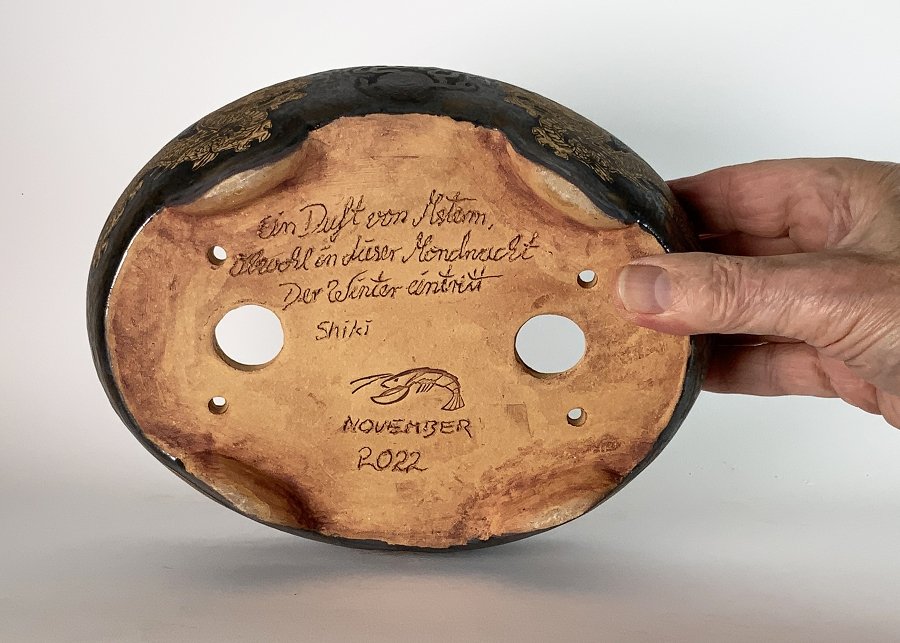 Ein Duft von Astern,
Obwohl in dieser Mondnacht
Der Winter eintritt
Shiki
NOVEMBER
2022